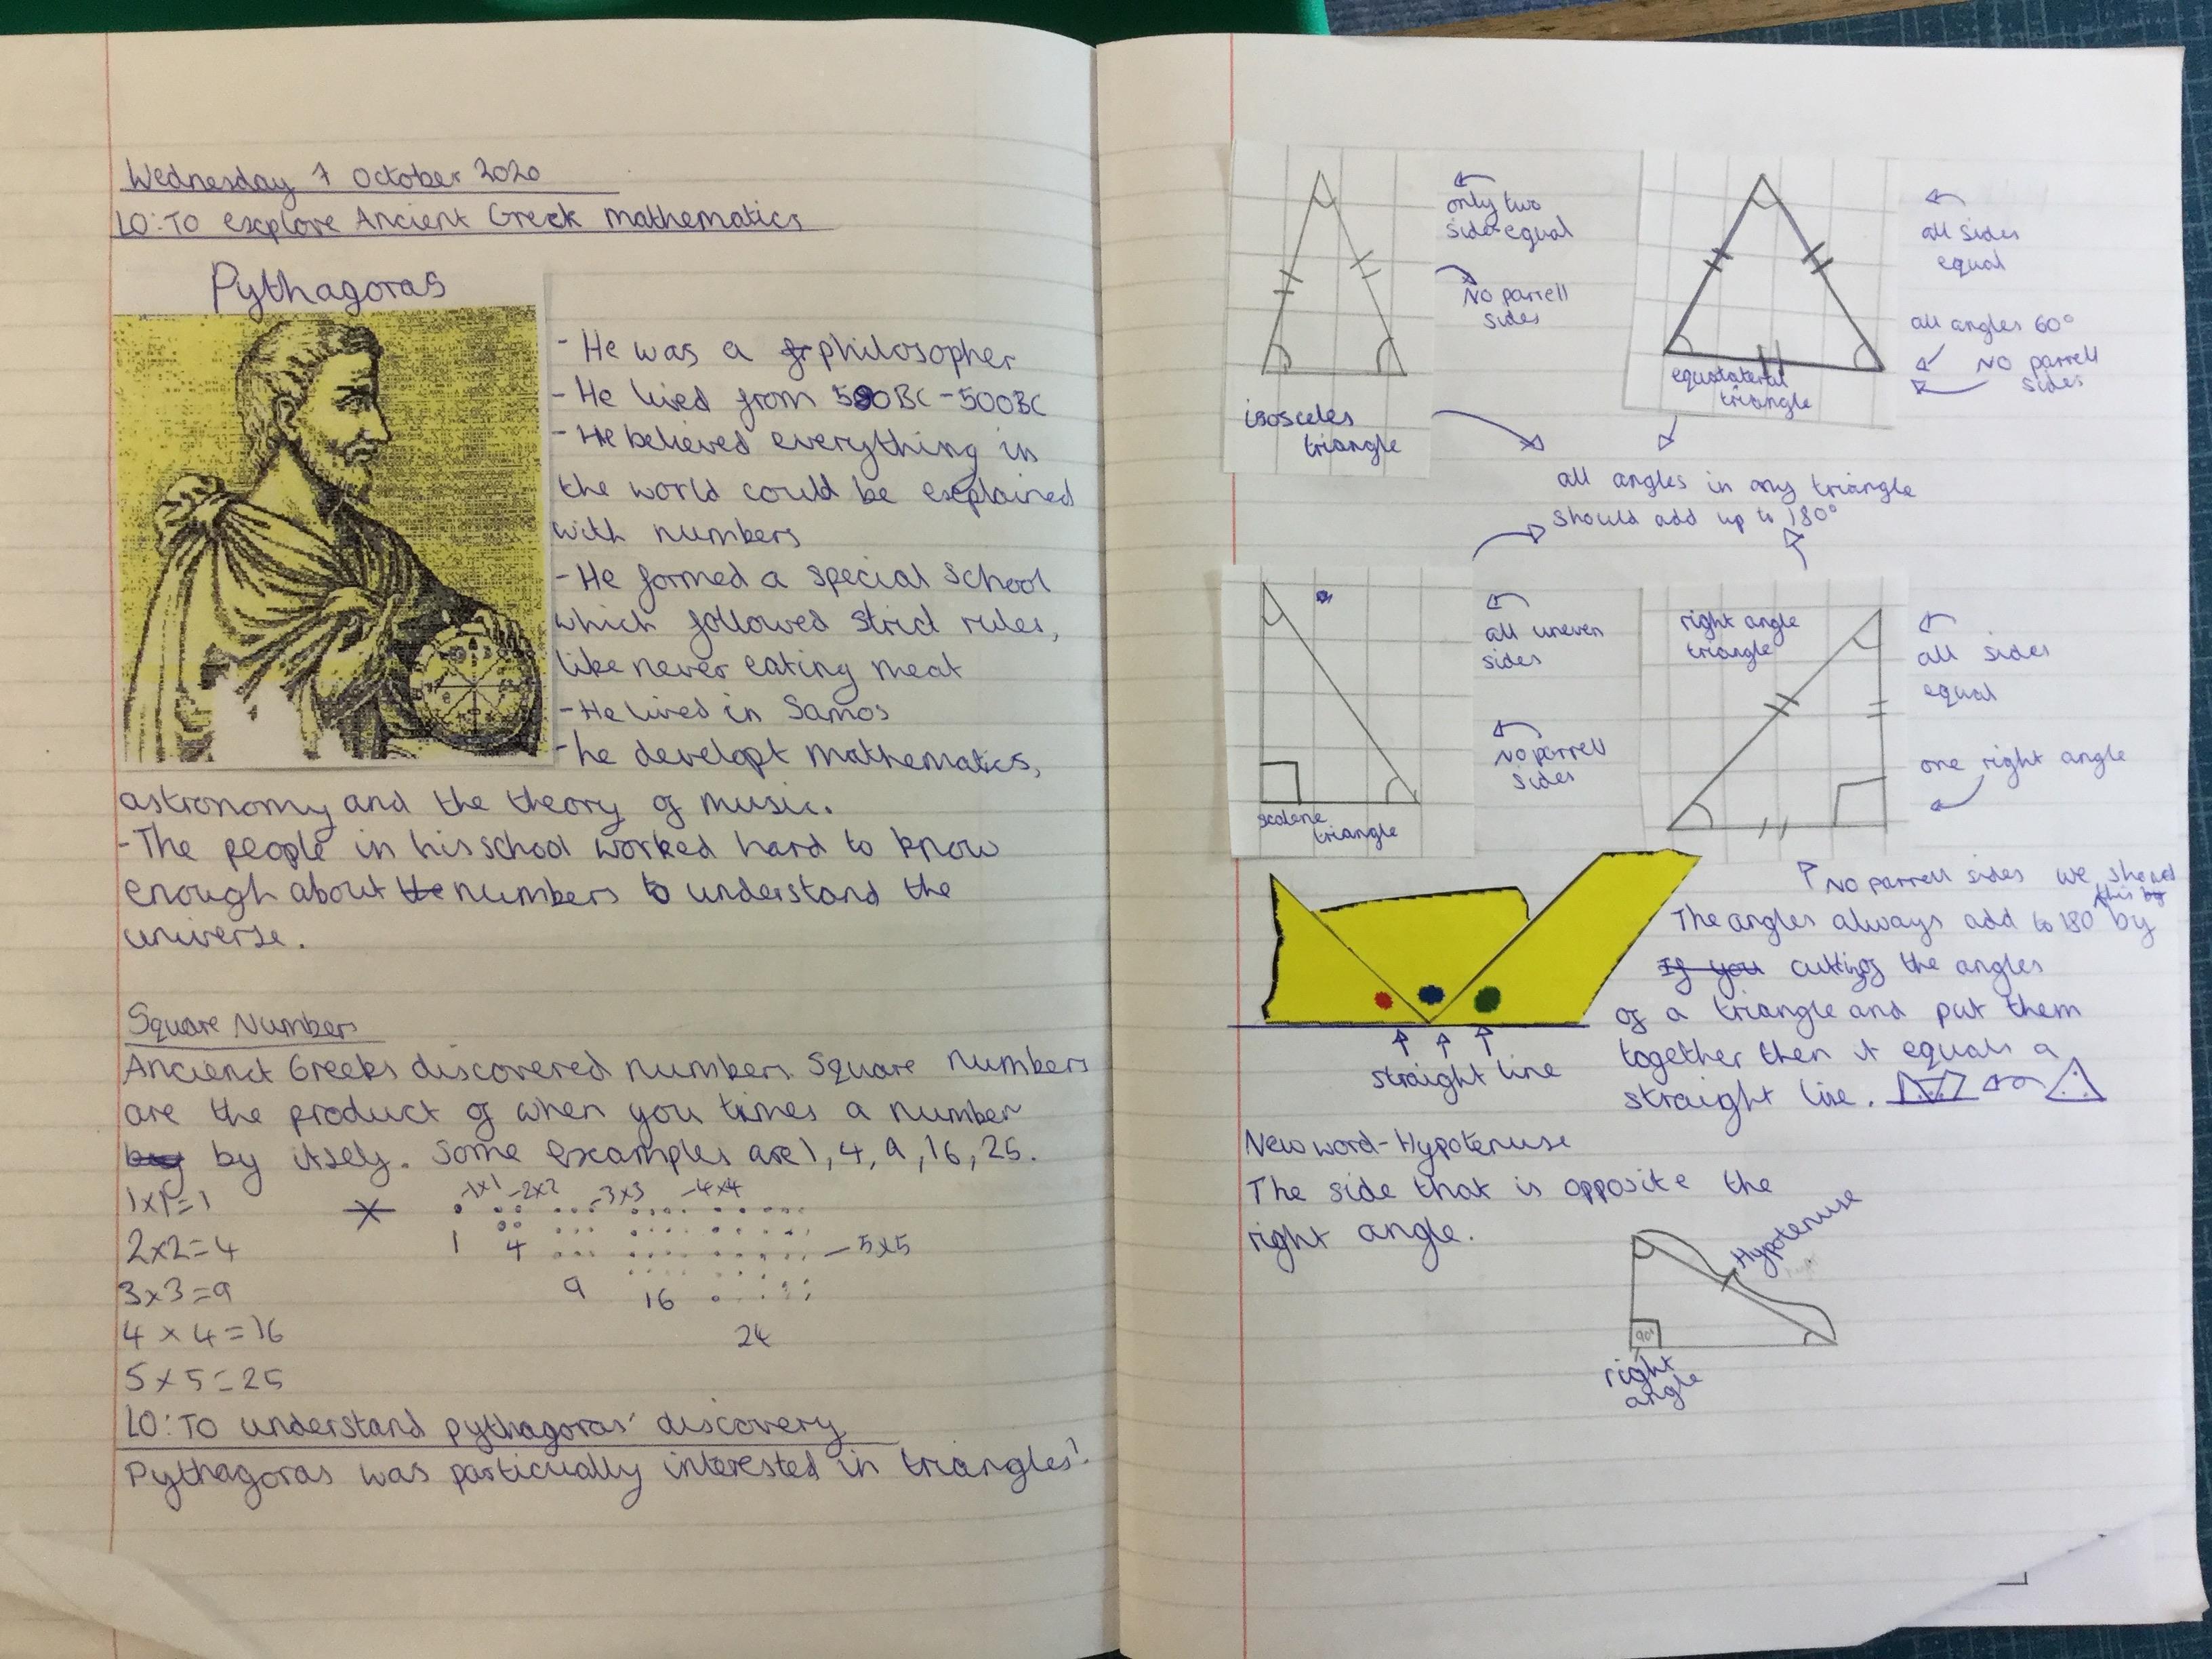 Wednesday 7 October 2020
LO: To explore Ancient Greek mathematics
Pythagoras
- He was a philosopher
- He lived from 580BC - 500BC
- He believed everything in
the world could be explained
with numbers
- He formed a special school
which followed strict rules,
like never eating meat
- He lived in Samos
- he developt mathematics,
astronomy and the theory of music.
- The people in his school worked hard to know
enough about the numbers to understand the
universe.
Square Numbers
Ancienct Greeks discovered numbers. Square numbers
are the product of when you times a number
by itself. Some examples are 1, 4, 9, 16, 25.
1x1=1
2x2=4
3x3=9
4x4=16
5x5=25
-1x1 -2x2 -3x3 -4x4
-5x5
1 4
9 16
24
LO: To understand pythagoras' discovery
Pythagoras was particually interested in triangles!
only two
side equal
No parrell
sides
isosceles
triangle
all sides
equal
all angles 60°
No parrell
sides
equalateral
triangle
all angles in any triangle
should add up to 180°
all uneven
sides
No parrell
sides
scalene
triangle
right angle
triangle
all sides
equal
one right angle
No parrell sides we showed
this by
The angles always add to 180 by
If you cutting the angles
of a triangle and put them
together then it equals a
straight line.
straight line
New word - Hypotenuse
The side that is opposite the
right angle.
Hypotenuse
90°
right
angle